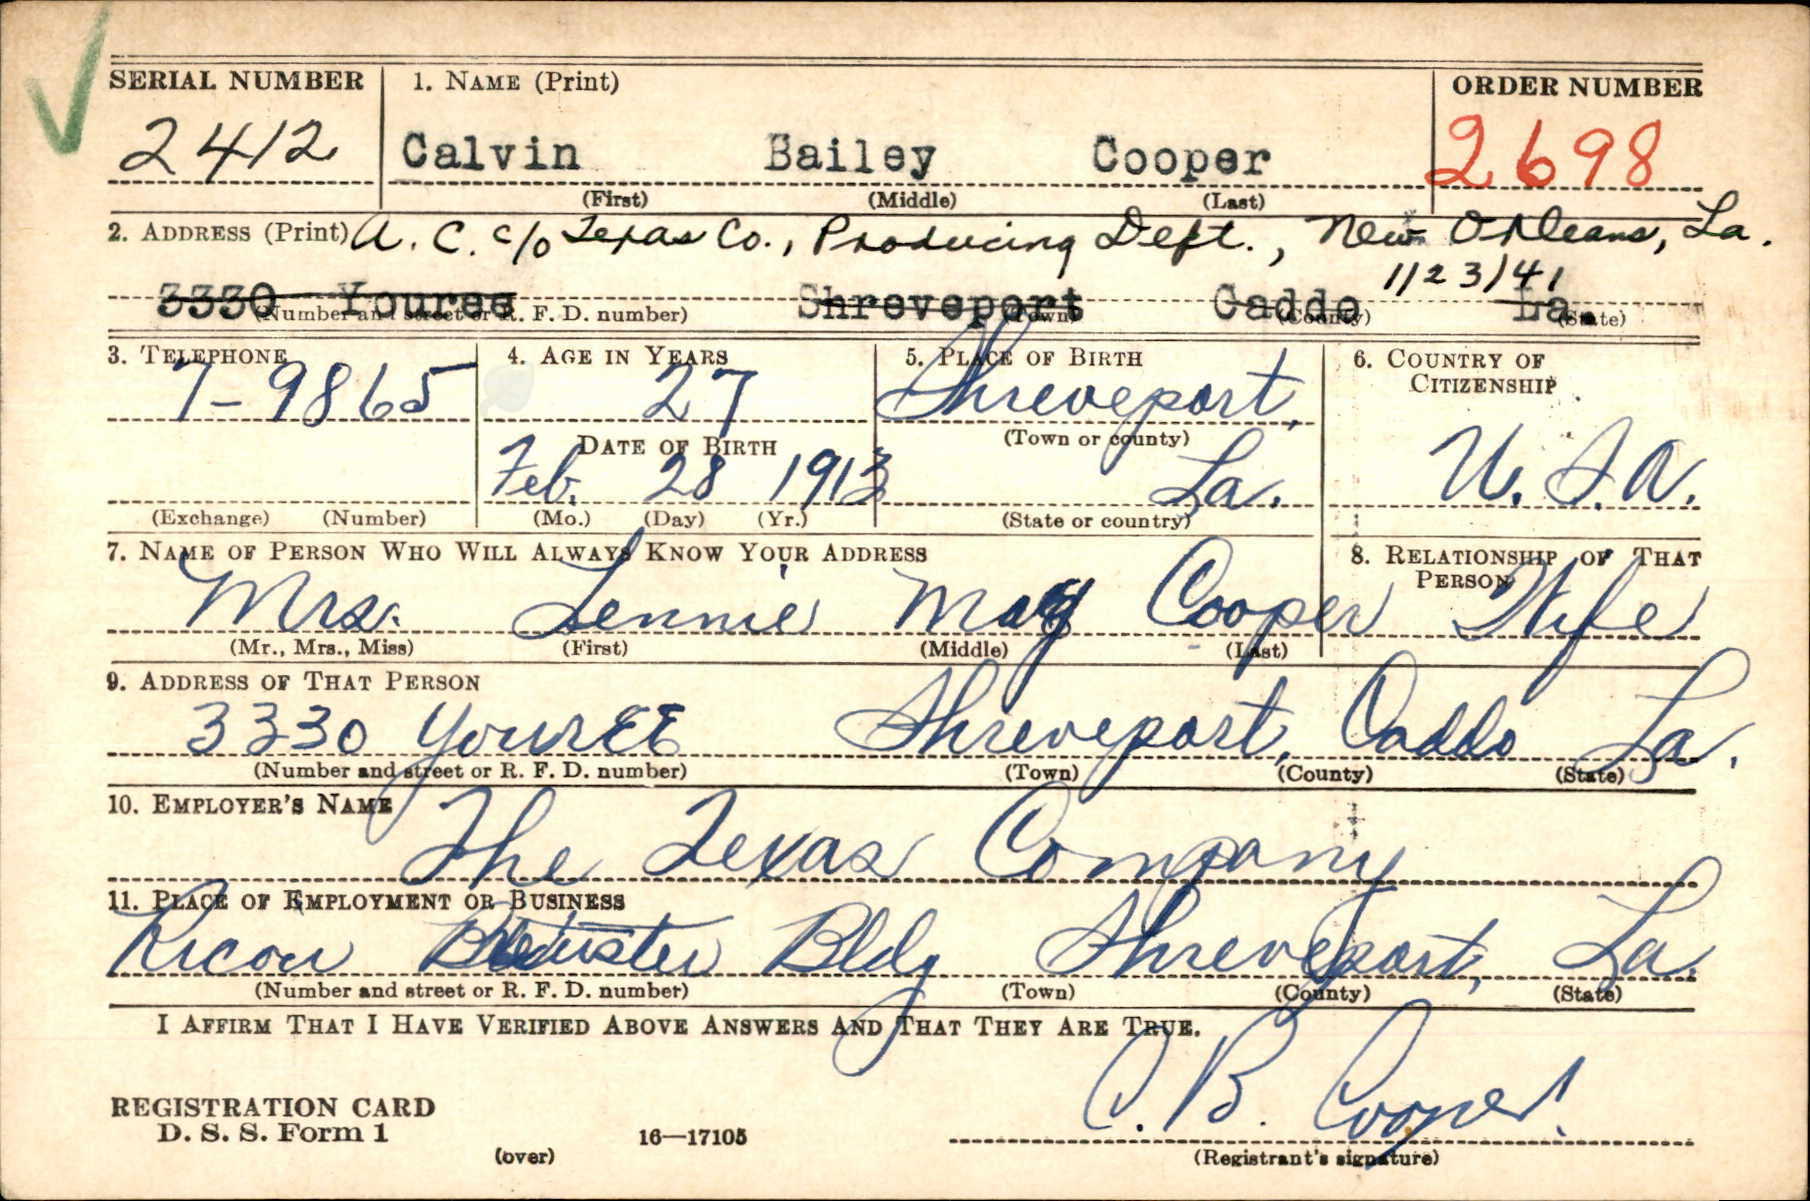 SERIAL NUMBER 1. NAME (Print) ORDER NUMBER
2412 Calvin Bailey Cooper 2698
(First) (Middle) (Last)
2. ADDRESS (Print) A. C. c/o Texas Co., Producing Dept., New Orleans, La.
1/23/41
3330 Youree Shreveport Caddo La.
(Number and street or R. F. D. number) (Town) (County) (State)
3. TELEPHONE 4. AGE IN YEARS 5. PLACE OF BIRTH 6. COUNTRY OF CITIZENSHIP
7-9865 27 Shreveport,
DATE OF BIRTH (Town or county)
Feb. 28 1913 La. U. S. A.
(Exchange) (Number) (Mo.) (Day) (Yr.) (State or country)
7. NAME OF PERSON WHO WILL ALWAYS KNOW YOUR ADDRESS 8. RELATIONSHIP OF THAT PERSON
Mrs. Lennie May Cooper Wife
(Mr., Mrs., Miss) (First) (Middle) (Last)
9. ADDRESS OF THAT PERSON
3330 YourEE Shreveport, Caddo La.
(Number and street or R. F. D. number) (Town) (County) (State)
10. EMPLOYER'S NAME
The Texas Company
11. PLACE OF EMPLOYMENT OR BUSINESS
Bldg Shreveport, La.
(Number and street or R. F. D. number) (Town) (County) (State)
I AFFIRM THAT I HAVE VERIFIED ABOVE ANSWERS AND THAT THEY ARE TRUE.
C. B. Cooper.
REGISTRATION CARD
D. S. S. Form 1 16—17105
(over) (Registrant's signature)